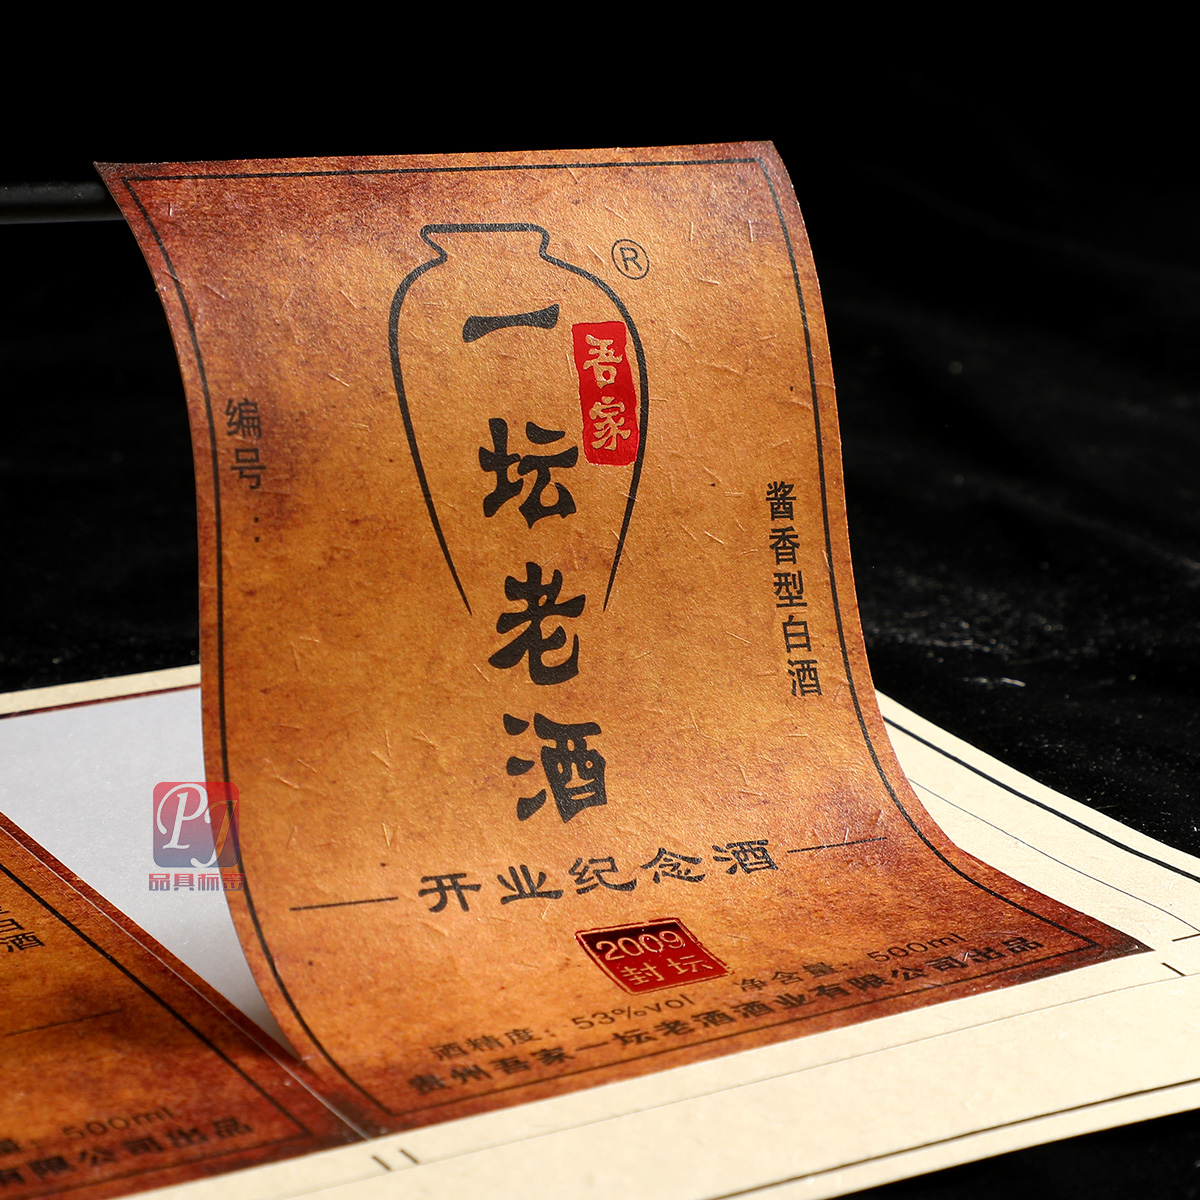 ®
一坛老酒
吾家
编号：
酱香型白酒
开业纪念酒
2009
封坛
酒精度：53%vol 净含量：500ml
贵州吾家一坛老酒酒业有限公司出品
PJ
品具标签
白酒
量：500ml
有限公司出品